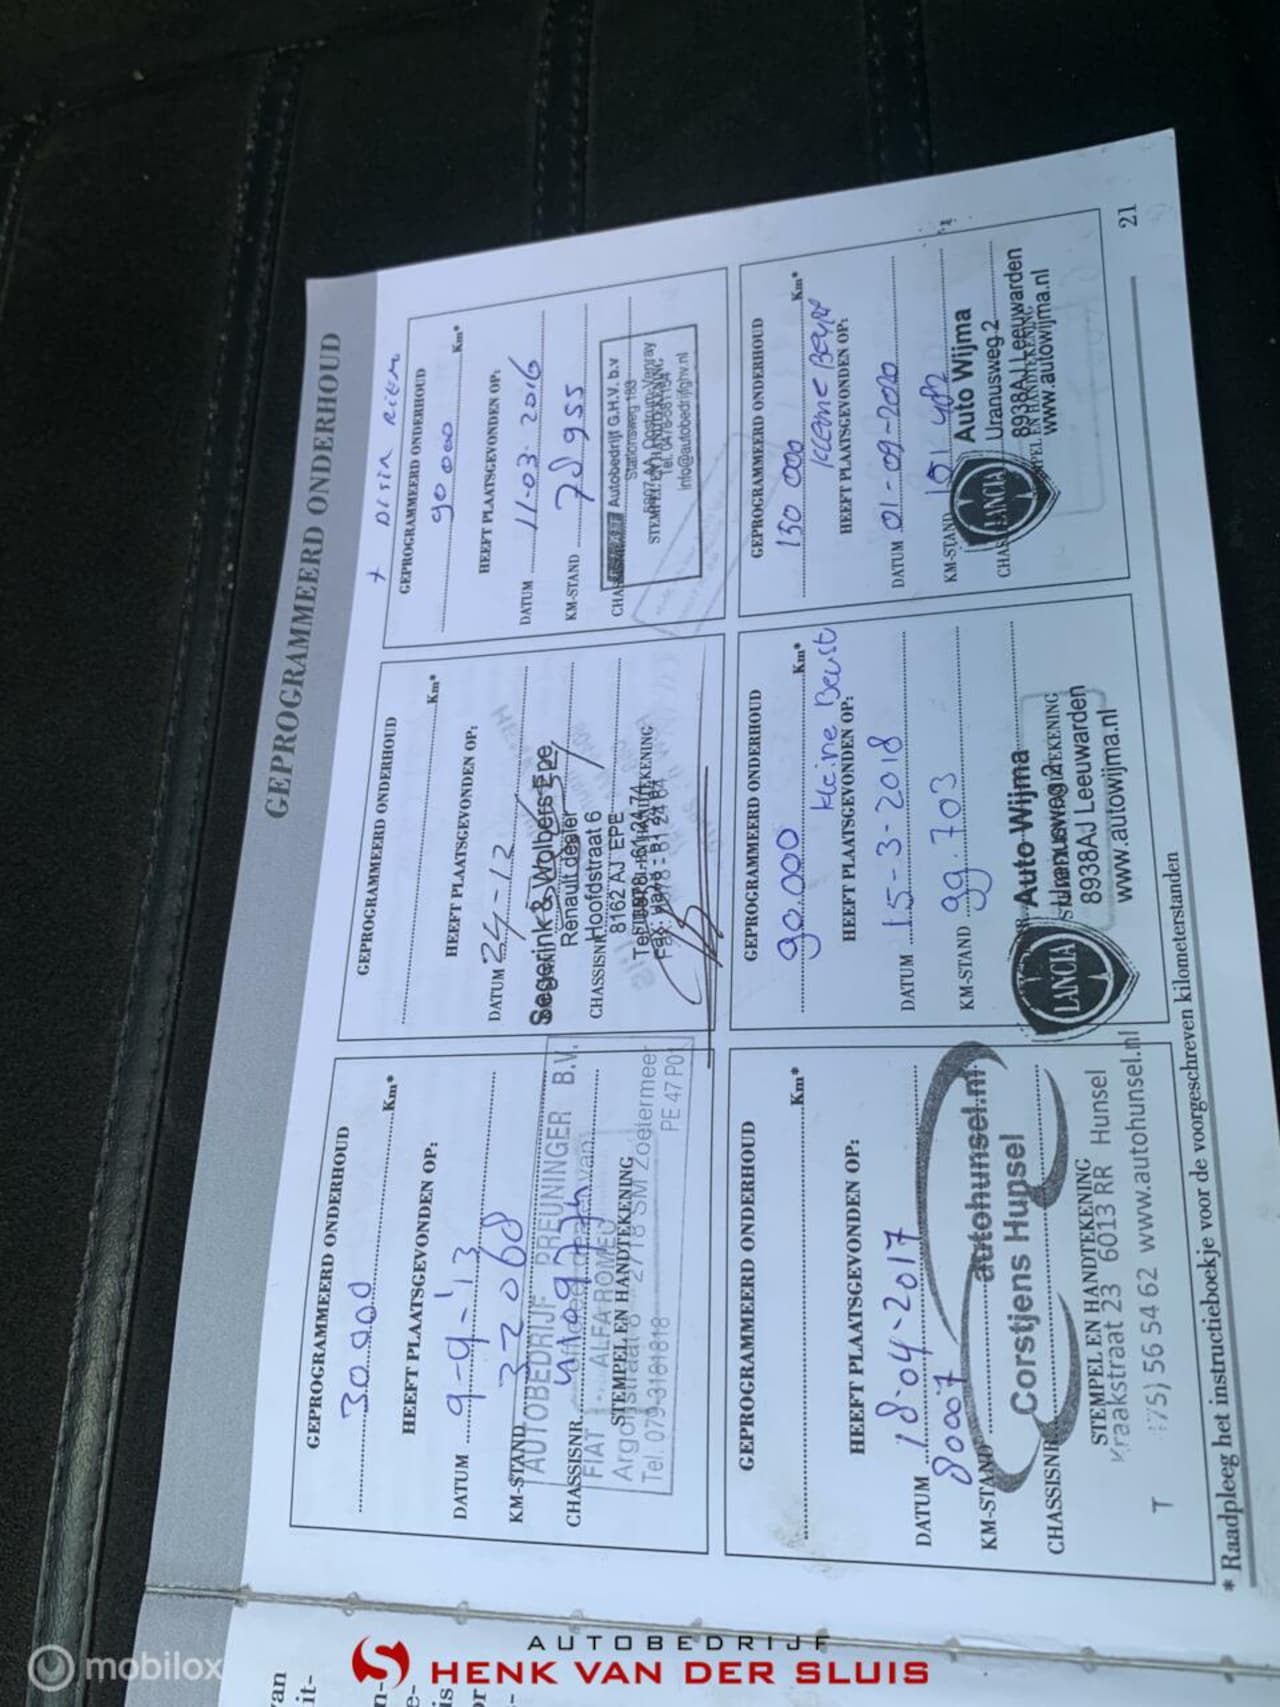 GEPROGRAMMEERD ONDERHOUD
GEPROGRAMMEERD ONDERHOUD
30.000 Km*
HEEFT PLAATSGEVONDEN OP:
DATUM 9-9-'13
KM-STAND 32068
CHASSISNR.
AUTOBEDRIJF PREUNINGER B.V.
FIAT ALFA ROMEO
STEMPEL EN HANDTEKENING
Argonstraat 8 2718 SM Zoetermeer
Tel. 079-3181818 PE 47 P01
GEPROGRAMMEERD ONDERHOUD
Km*
HEEFT PLAATSGEVONDEN OP:
DATUM 24-12
Segerink & Wolbers Epe
Renault dealer
CHASSISNR.
Hoofdstraat 6
8162 AJ EPE
+ DISTR RIEM
GEPROGRAMMEERD ONDERHOUD
90 000 Km*
HEEFT PLAATSGEVONDEN OP:
DATUM 11-03-2016
KM-STAND 78955
Autobedrijf G.H.V. b.v
Stationsweg 183
info@autobedrijfghv.nl
GEPROGRAMMEERD ONDERHOUD
Km*
HEEFT PLAATSGEVONDEN OP:
DATUM 18-04-2017
80007
KM-STAND
autohunsel.nl
Corstjens Hunsel
CHASSISNR.
STEMPEL EN HANDTEKENING
Kraakstraat 23 6013 RR Hunsel
T 75) 56 54 62 www.autohunsel.nl
GEPROGRAMMEERD ONDERHOUD
90.000 Km*
kleine Beurt
HEEFT PLAATSGEVONDEN OP:
DATUM 15-3-2018
KM-STAND 99.703
LANCIA
Auto Wijma
Uranusweg 2
8938AJ Leeuwarden
www.autowijma.nl
GEPROGRAMMEERD ONDERHOUD
150 000 Km*
Kleine Beurt
HEEFT PLAATSGEVONDEN OP:
DATUM 01-09-2020
KM-STAND 151 482
LANCIA
Auto Wijma
Uranusweg 2
8938AJ Leeuwarden
www.autowijma.nl
* Raadpleeg het instructieboekje voor de voorgeschreven kilometerstanden
21
mobilox
AUTOBEDRIJF
HENK VAN DER SLUIS